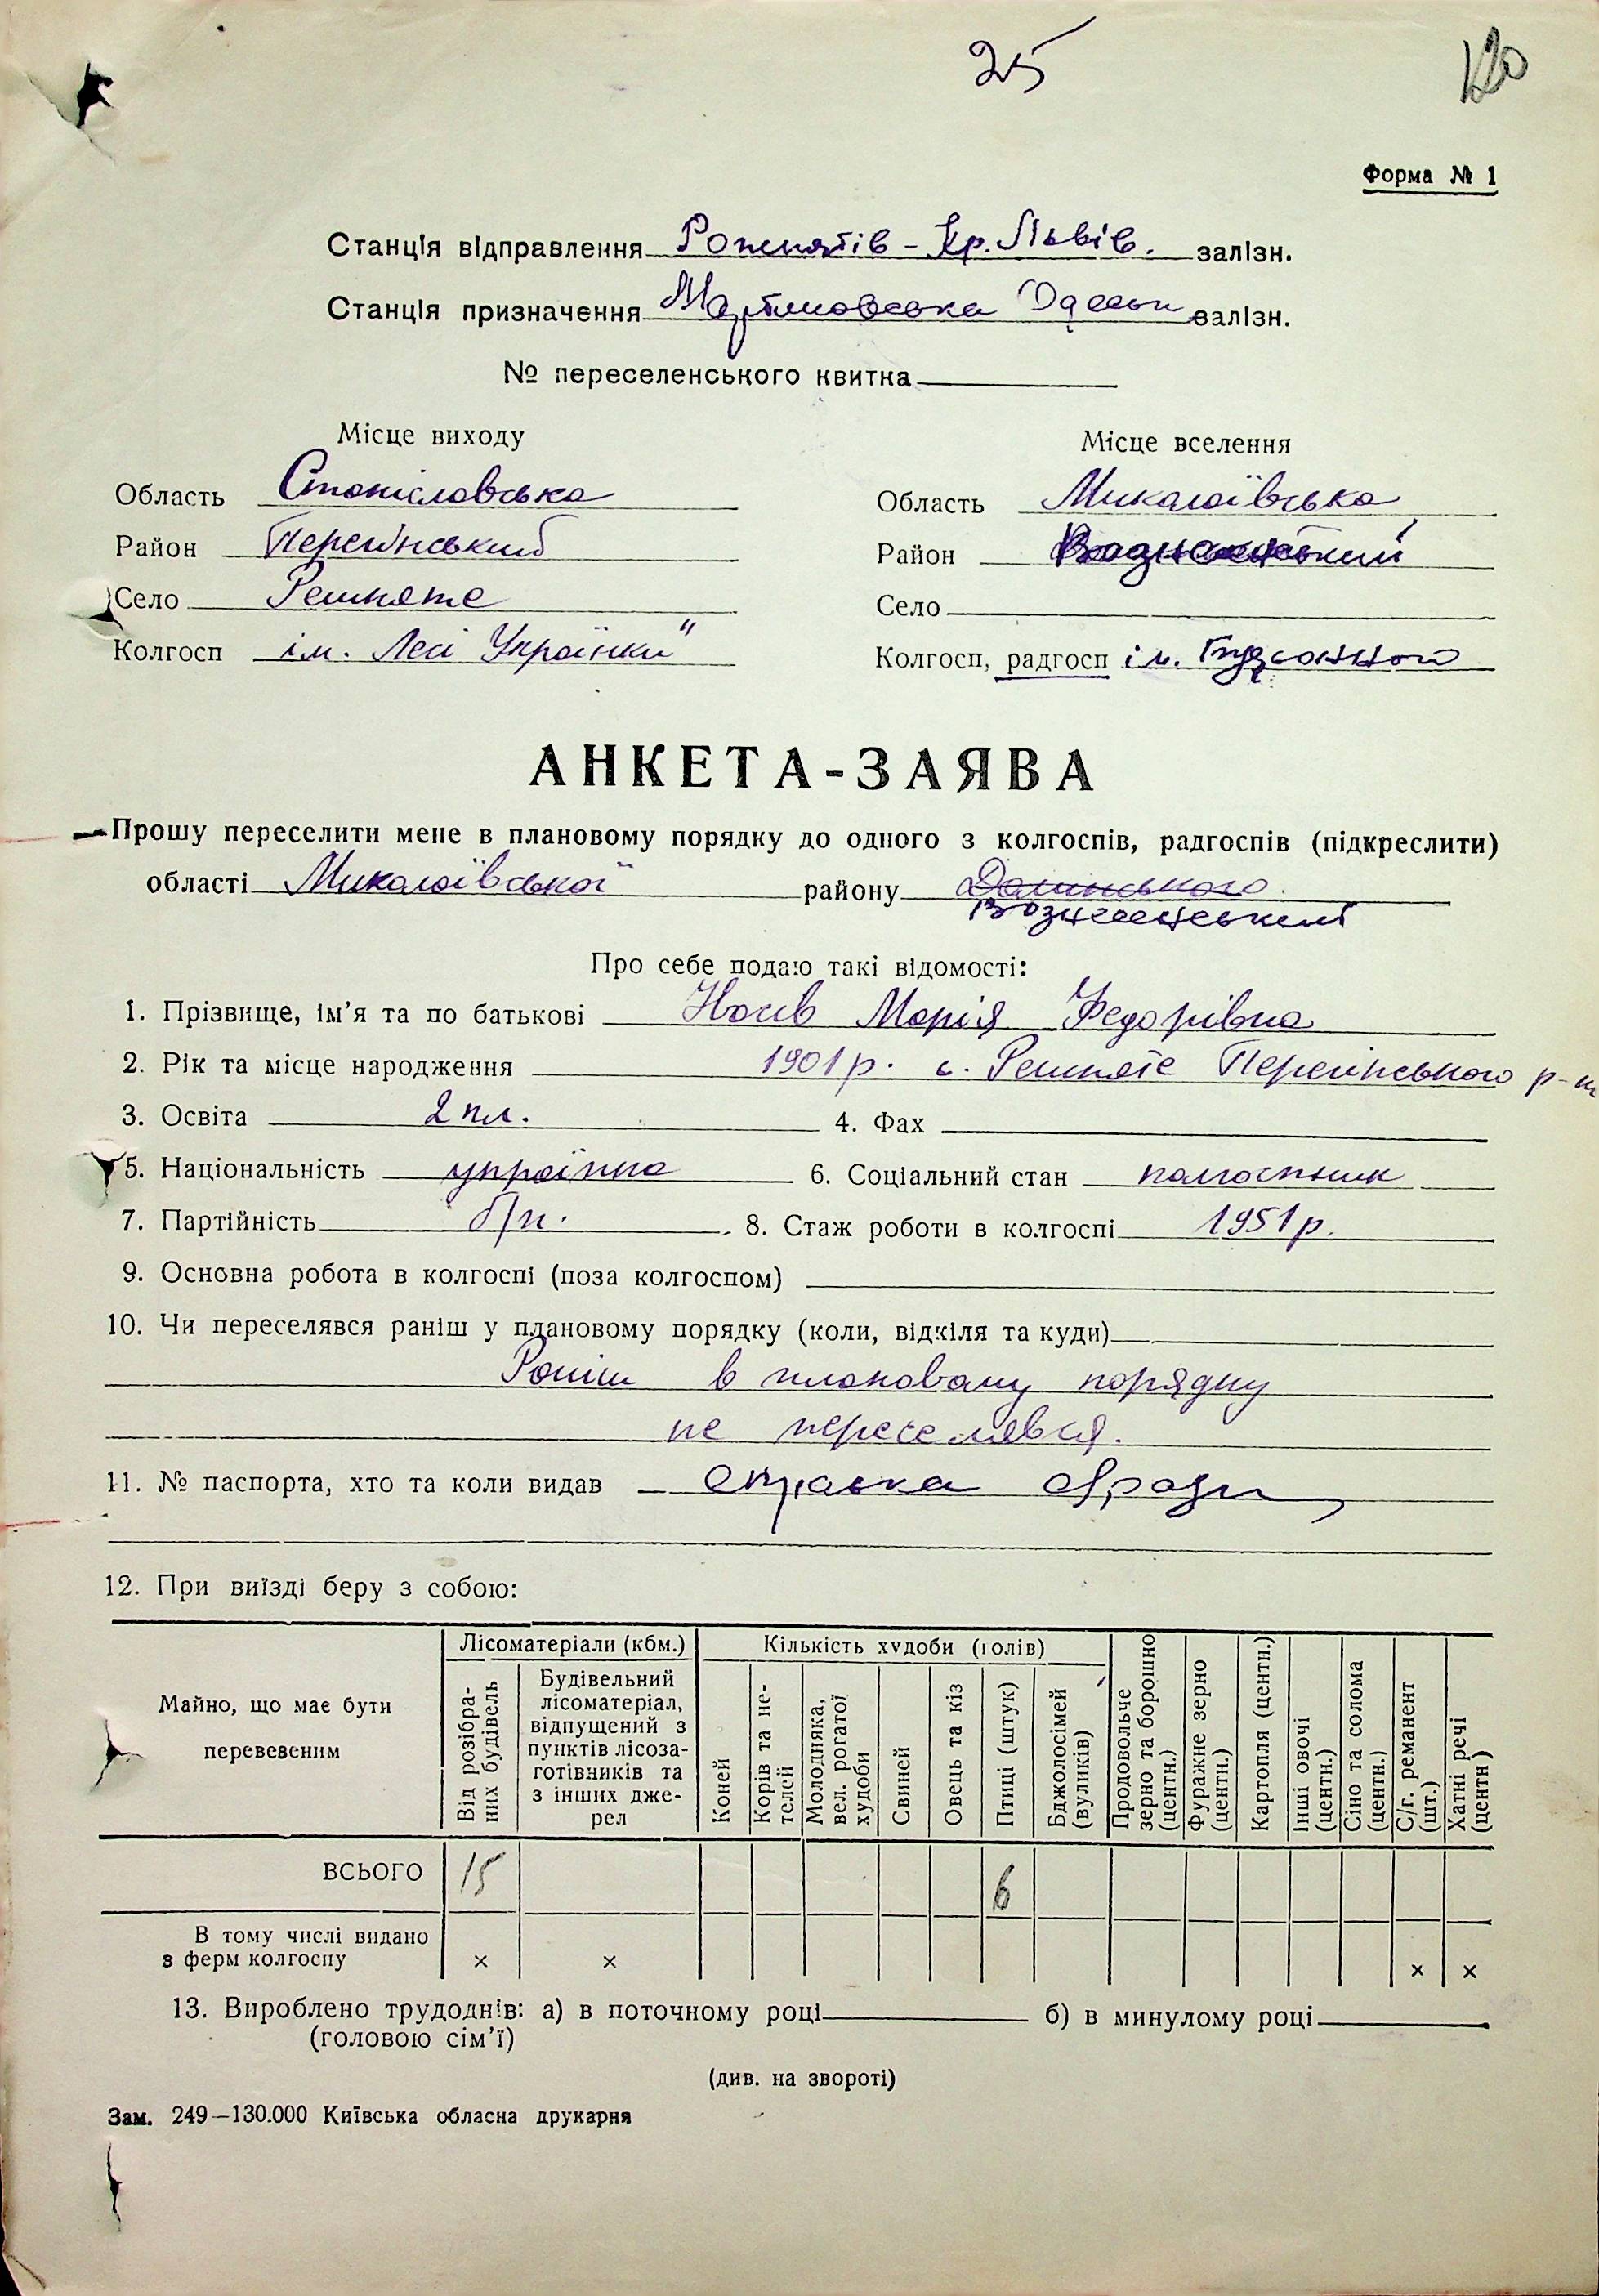 25
120
Форма № 1
Станція відправлення Рожнятів - Кр. Львів. залізн.
Станція призначення Мартиновська Одеськ залізн.
№ переселенського квитка
Місце виходу
Місце вселення
Область Станіславська
Область Миколаївська
Район Перегінський
Район Вознесенський
Село Решняте
Село
Колгосп ім. Лесі Українки"
Колгосп, радгосп ім. Будьонного
АНКЕТА-ЗАЯВА
Прошу переселити мене в плановому порядку до одного з колгоспів, радгоспів (підкреслити)
області Миколаївської району Долинського
Вознесенський
Про себе подаю такі відомості:
1. Прізвище, ім'я та по батькові Носів Марія Федорівна
2. Рік та місце народження 1901 р. с. Решняте Перегінського р-н
3. Освіта 2 кл. 4. Фах
5. Національність українка 6. Соціальний стан колгоспник
7. Партійність б/п. 8. Стаж роботи в колгоспі 1951 р.
9. Основна робота в колгоспі (поза колгоспом)
10. Чи переселявся раніш у плановому порядку (коли, відкіля та куди)
Раніш в плановому порядку
не переселявся.
11. № паспорта, хто та коли видав справка
12. При виїзді беру з собою:
Майно, що має бути перевезеним
Лісоматеріали (кбм.)
Кількість худоби (голів)
Від розібраних будівель
Будівельний лісоматеріал, відпущений з пунктів лісозаготівників та з інших джерел
Коней
Корів та нетелей
Молодняка, вел. рогатої худоби
Свиней
Овець та кіз
Птиці (штук)
Бджолосімей (вуликів)
Продовольче зерно та борошно (центн.)
Фуражне зерно (центн.)
Картопля (центн.)
Інші овочі (центн.)
Сіно та солома (центн.)
С/г. реманент (шт.)
Хатні речі (центн)
ВСЬОГО 15 6
В тому числі видано
з ферм колгоспу × × × ×
13. Вироблено трудоднів: а) в поточному році б) в минулому році
(головою сім'ї)
(див. на звороті)
Зам. 249—130.000 Київська обласна друкарня